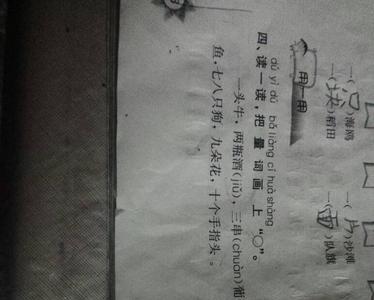 一(只)海鸥 一(片)沙滩
一(块)稻田 一(面)队旗
用一用
dú yì dú bǎ liàng cí huà shàng
四、读一读,把量词画上“○”。
一头牛,两瓶酒(jiǔ),三串(chuàn)葡
鱼,七八只狗,九朵花,十个手指头。